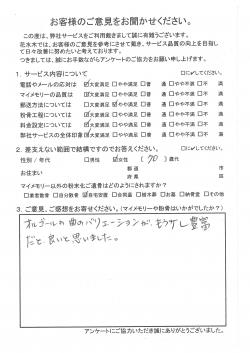 お客様のご意見をお聞かせください。
この度は、弊社サービスをご利用頂きまして誠に有難うございます。
花水木では、お客様のご意見を参考にさせて戴き、サービス品質の向上を目指して
日々改善に努めたいと考えております。
つきましては、誠にお手数ながらアンケートのご協力をお願い申し上げます。
1. サービス内容について □に✓してください。
電話やメールの応対は ☑大変満足 □やや満足 □普 通 □やや不満 □不満
マイメモリーの品質は ☑大変満足 □やや満足 □普 通 □やや不満 □不満
郵送方法については ☑大変満足 □やや満足 □普 通 □やや不満 □不満
粉骨工程については ☑大変満足 □やや満足 □普 通 □やや不満 □不満
料金については ☑大変満足 □やや満足 □普 通 □やや不満 □不満
弊社サービスの全体印象 ☑大変満足 □やや満足 □普 通 □やや不満 □不満
2. 差支えない範囲で結構ですのでお答えください。 □に✓してください。
性別/年代 □男性 ☑女性 ( 70 ) 歳代
お住まい 都 道
府 県
マイメモリー以外の粉末化ご遺骨はどのようにされますか?
3. ご意見、ご感想をお寄せください。(マイメモリーや粉骨はいかがでしたか?)
オルゴールの曲のバリエーションが、もう少し豊富
だと良いと思いました。
アンケートにご協力いただき誠にありがとうございました。